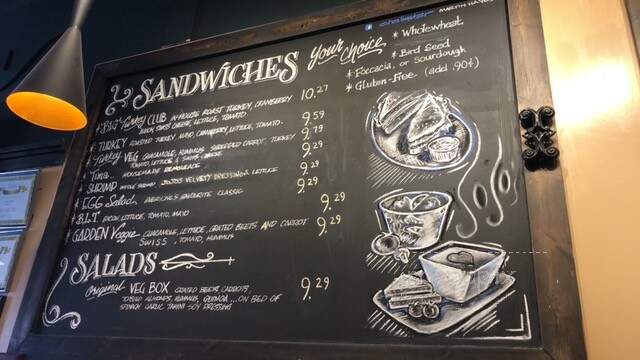 SANDWICHES
your choice
* Wholewheat
* Bird Seed
* Foccacia, or Sourdough
* Gluten-Free (add .90¢)
BIG Turkey CLUB IN-HOUSE ROAST TURKEY, CRANBERRY 10.27
BACON, SWISS CHEESE, LETTUCE, TOMATO
TURKEY ROASTED TURKEY, MAYO, CRANBERRY, LETTUCE, TOMATO. 9.59
Turkey VEG GUACAMOLE, HUMMUS SHREDDED CARROT, TURKEY 9.79
TOMATO, LETTUCE & SWISS CHEESE
Tuna HOUSEMADE REMOULADE 9.29
SHRIMP WHOLE SHRIMP JOJOS VELVETY DRESSING & LETTUCE 9.29
EGG Salad EVERYONE'S FAVOURITE CLASSIC 9.29
B.L.T. BACON, LETTUCE, TOMATO, MAYO 9.29
GARDEN Veggie GUACAMOLE, LETTUCE, GRATED BEETS AND CARROT 9.29
SWISS, TOMATO, HUMMUS
SALADS
Original VEG BOX GRATED BEETS, CARROTS, 9.29
ALMONDS, HUMMUS, QUINOA... ON BED OF
SPINACH GARLIC TAHINI SOY DRESSING
JoJo's